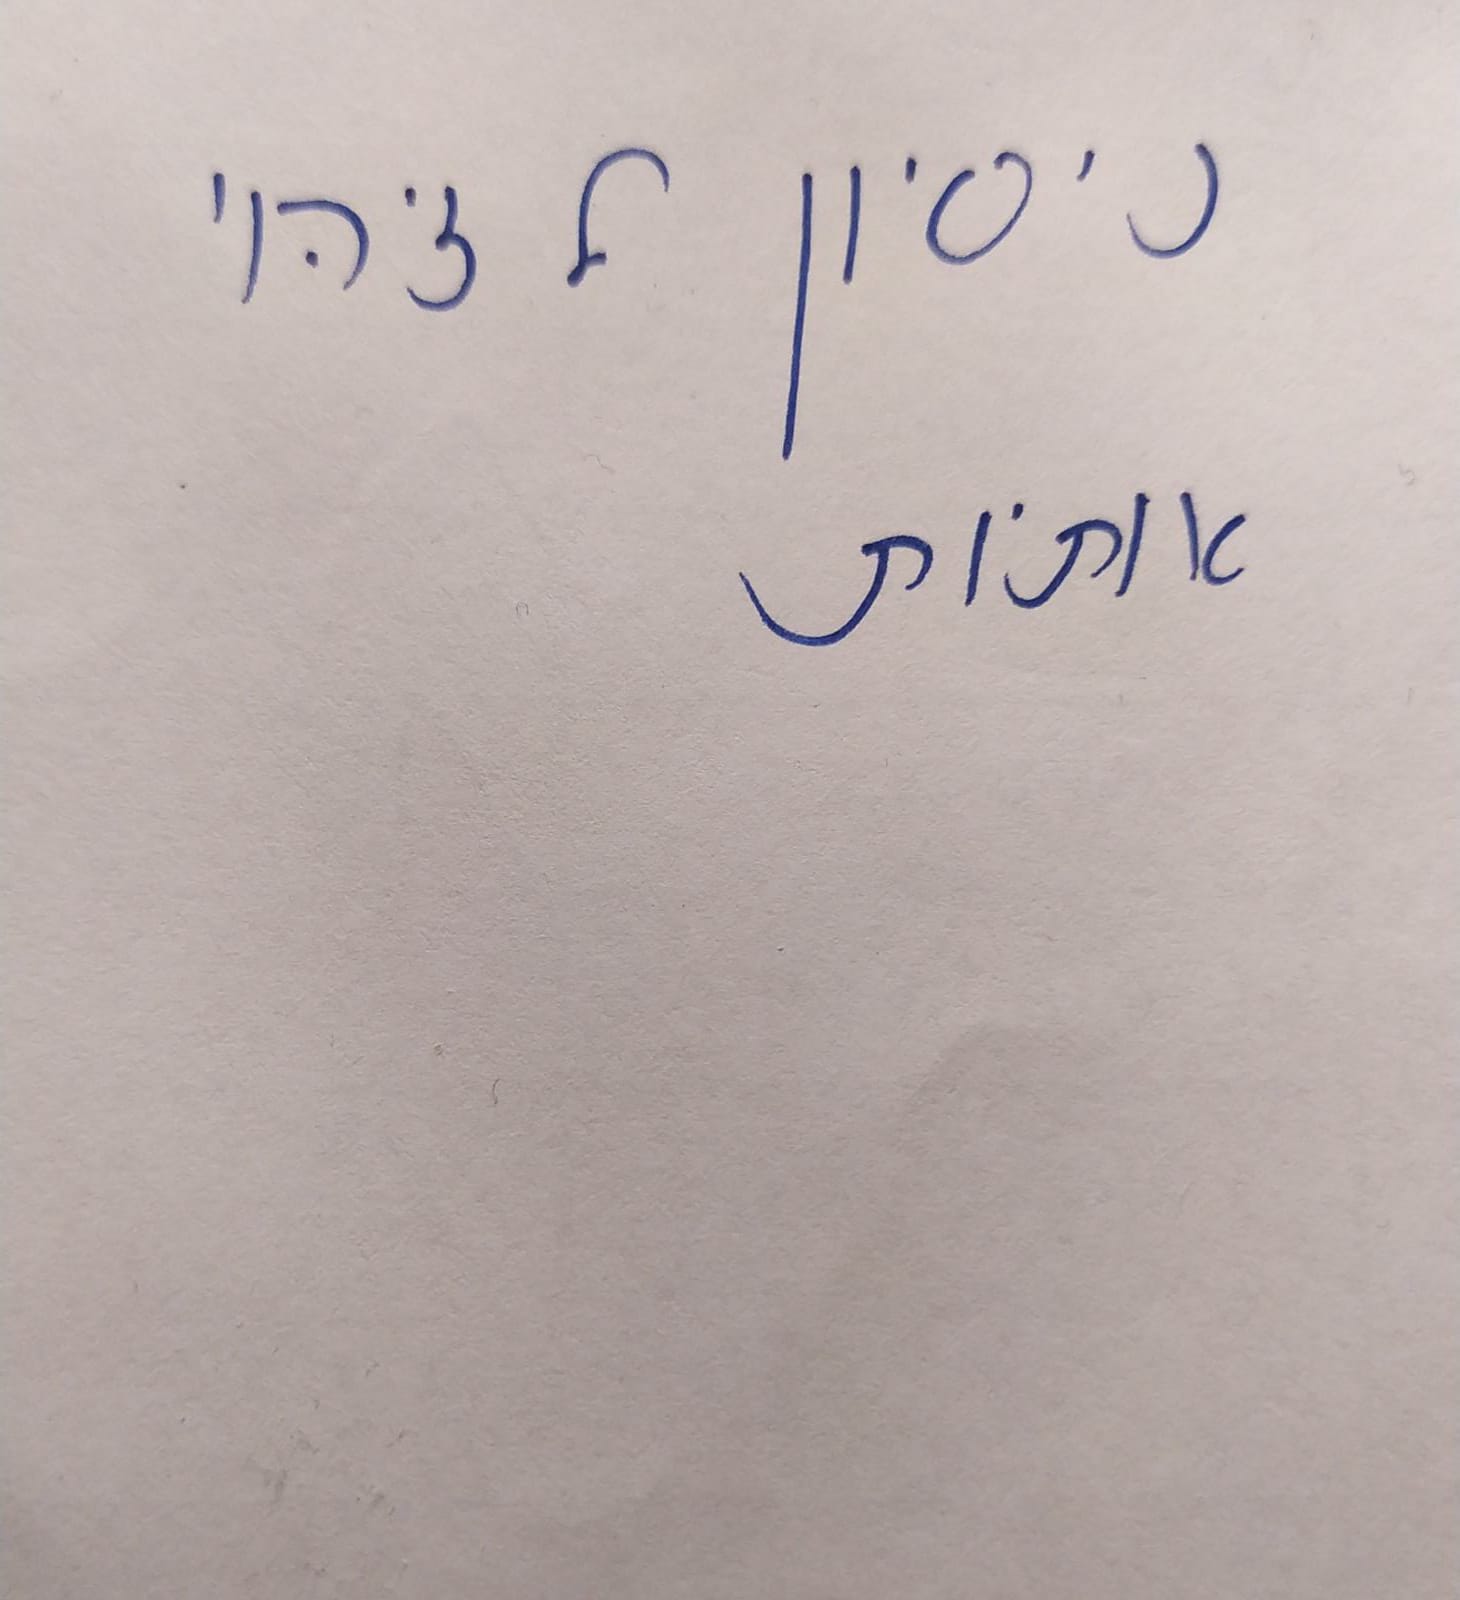 ניסיון ל זיהוי
אותיות